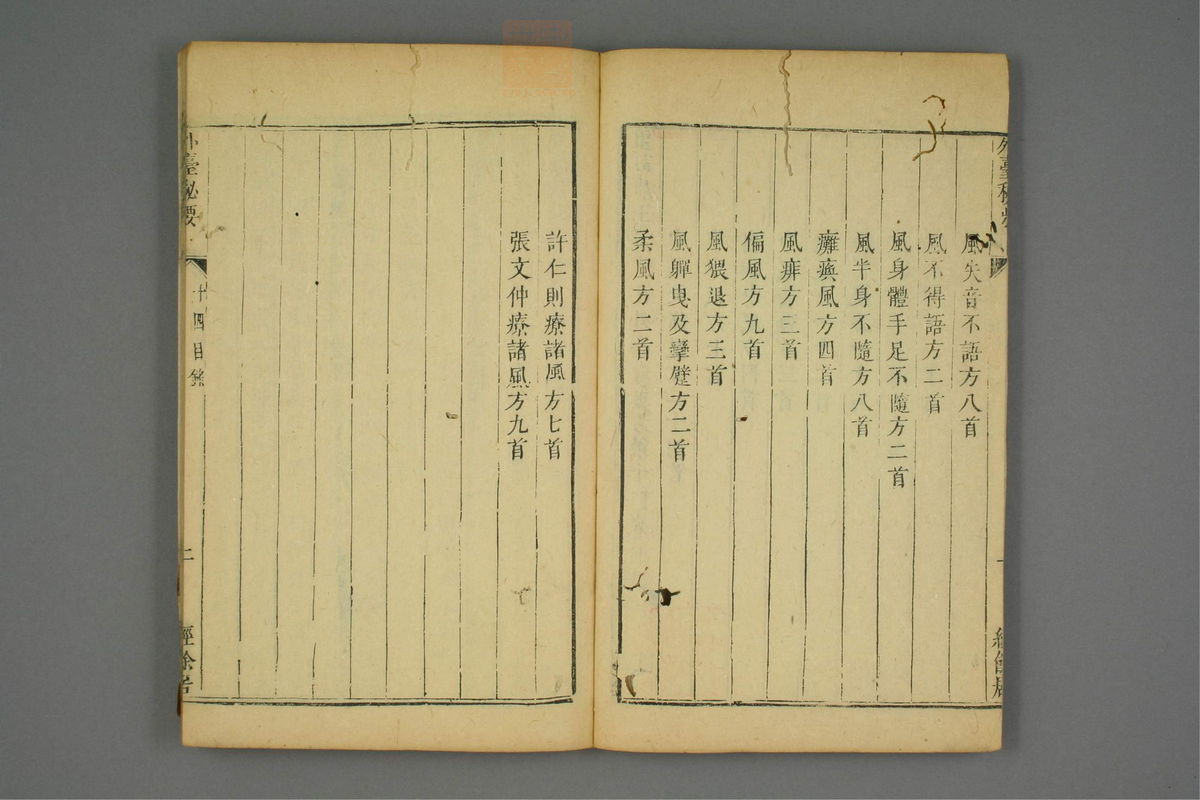 風失音不語方八首
風不得語方二首
風身體手足不隨方二首
風半身不隨方八首
癱瘓風方四首
風痱方三首
偏風方九首
風猥退方三首
風軃曳及攣躄方二首
柔風方二首
許仁則療諸風方七首
張文仲療諸風方九首
外臺秘要
十四目錄
二
經餘居